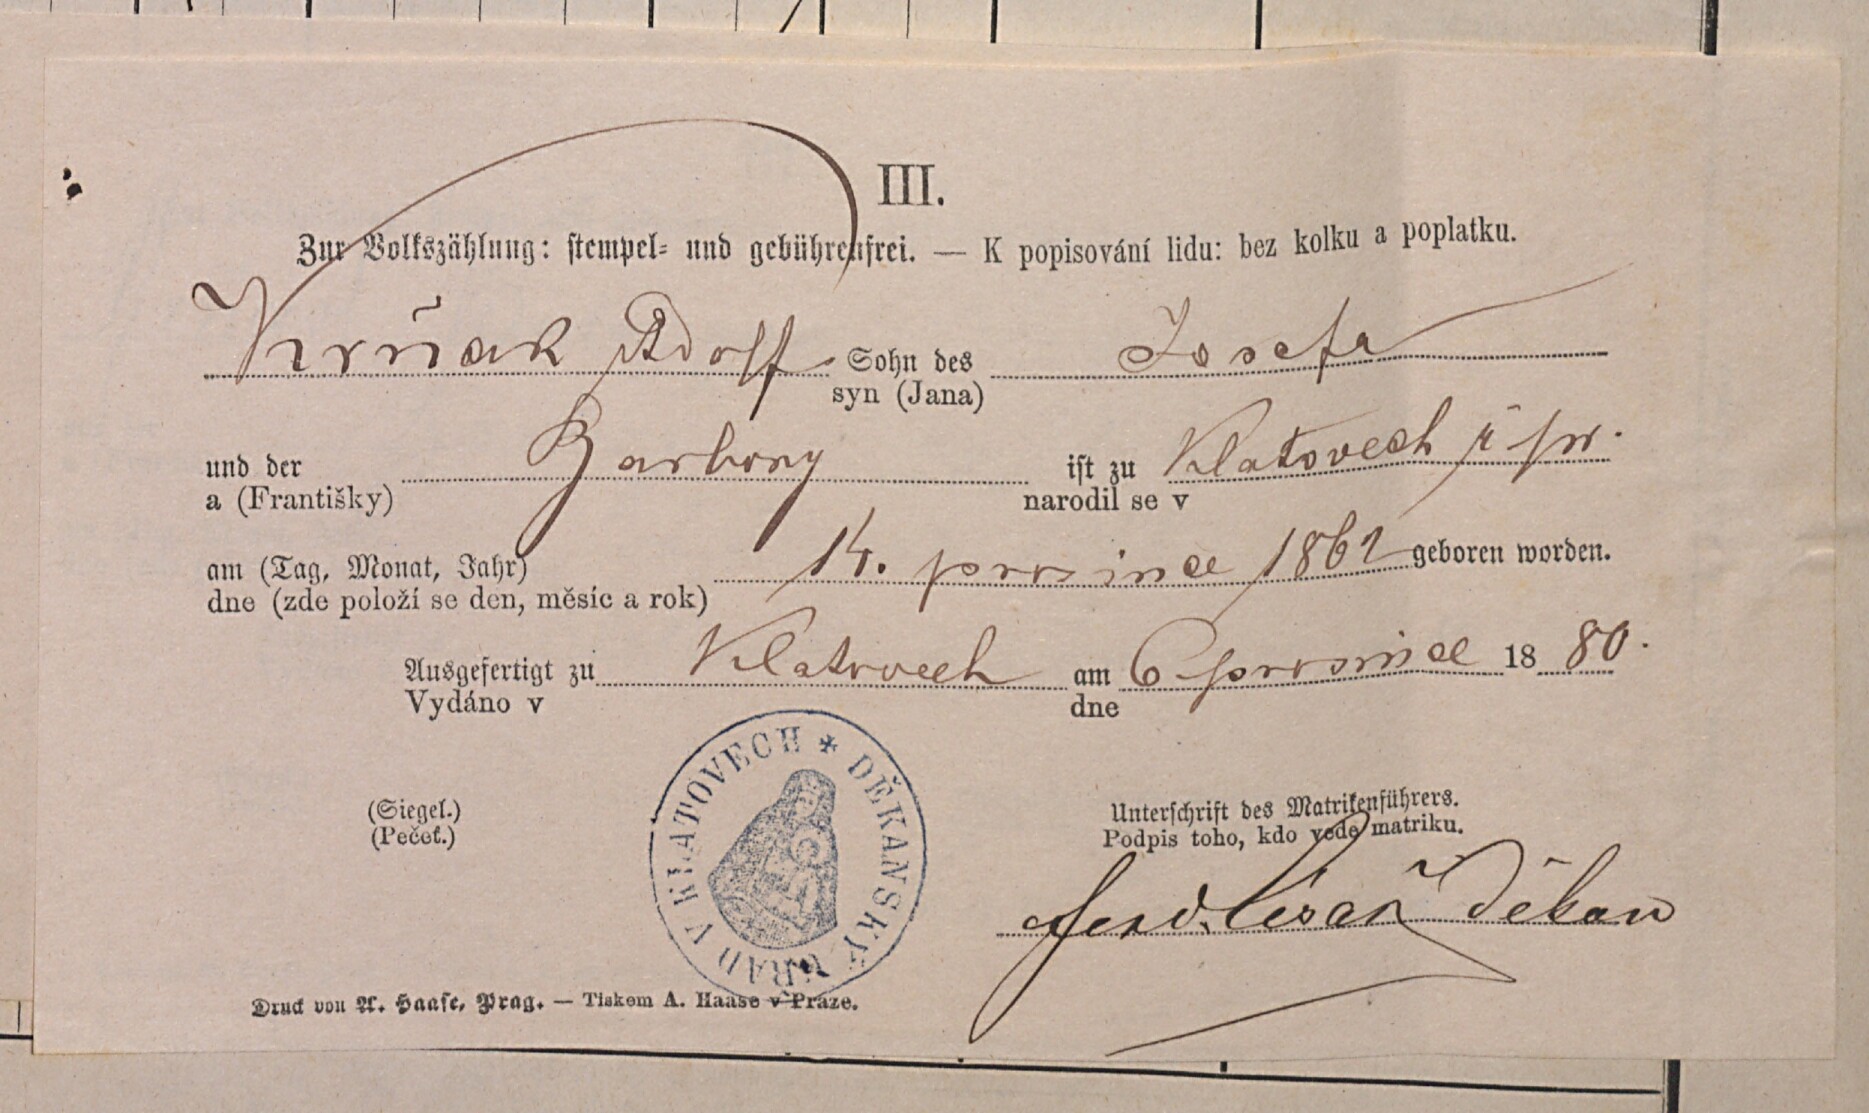 III.
Zur Volkszählung: stempel- und gebührenfrei. — K popisování lidu: bez kolku a poplatku.
Krňak Adolf Sohn des Josefa
syn (Jana)
und der Barbory ist zu Klatovech
a (Františky) narodil se v
am (Tag, Monat, Jahr) 14. prosince 1862 geboren worden.
dne (zde položí se den, měsíc a rok)
Ausgefertigt zu Klatovech am 6 prosince 18 80.
Vydáno v dne
DĚKANSKÝ ÚŘAD V KLATOVECH *
(Siegel.) Unterschrift des Matrikenführers.
(Pečeť.) Podpis toho, kdo vede matriku.
Ferd. Císař Děkan
Druck von A. Haase, Prag. — Tiskem A. Haase v Praze.